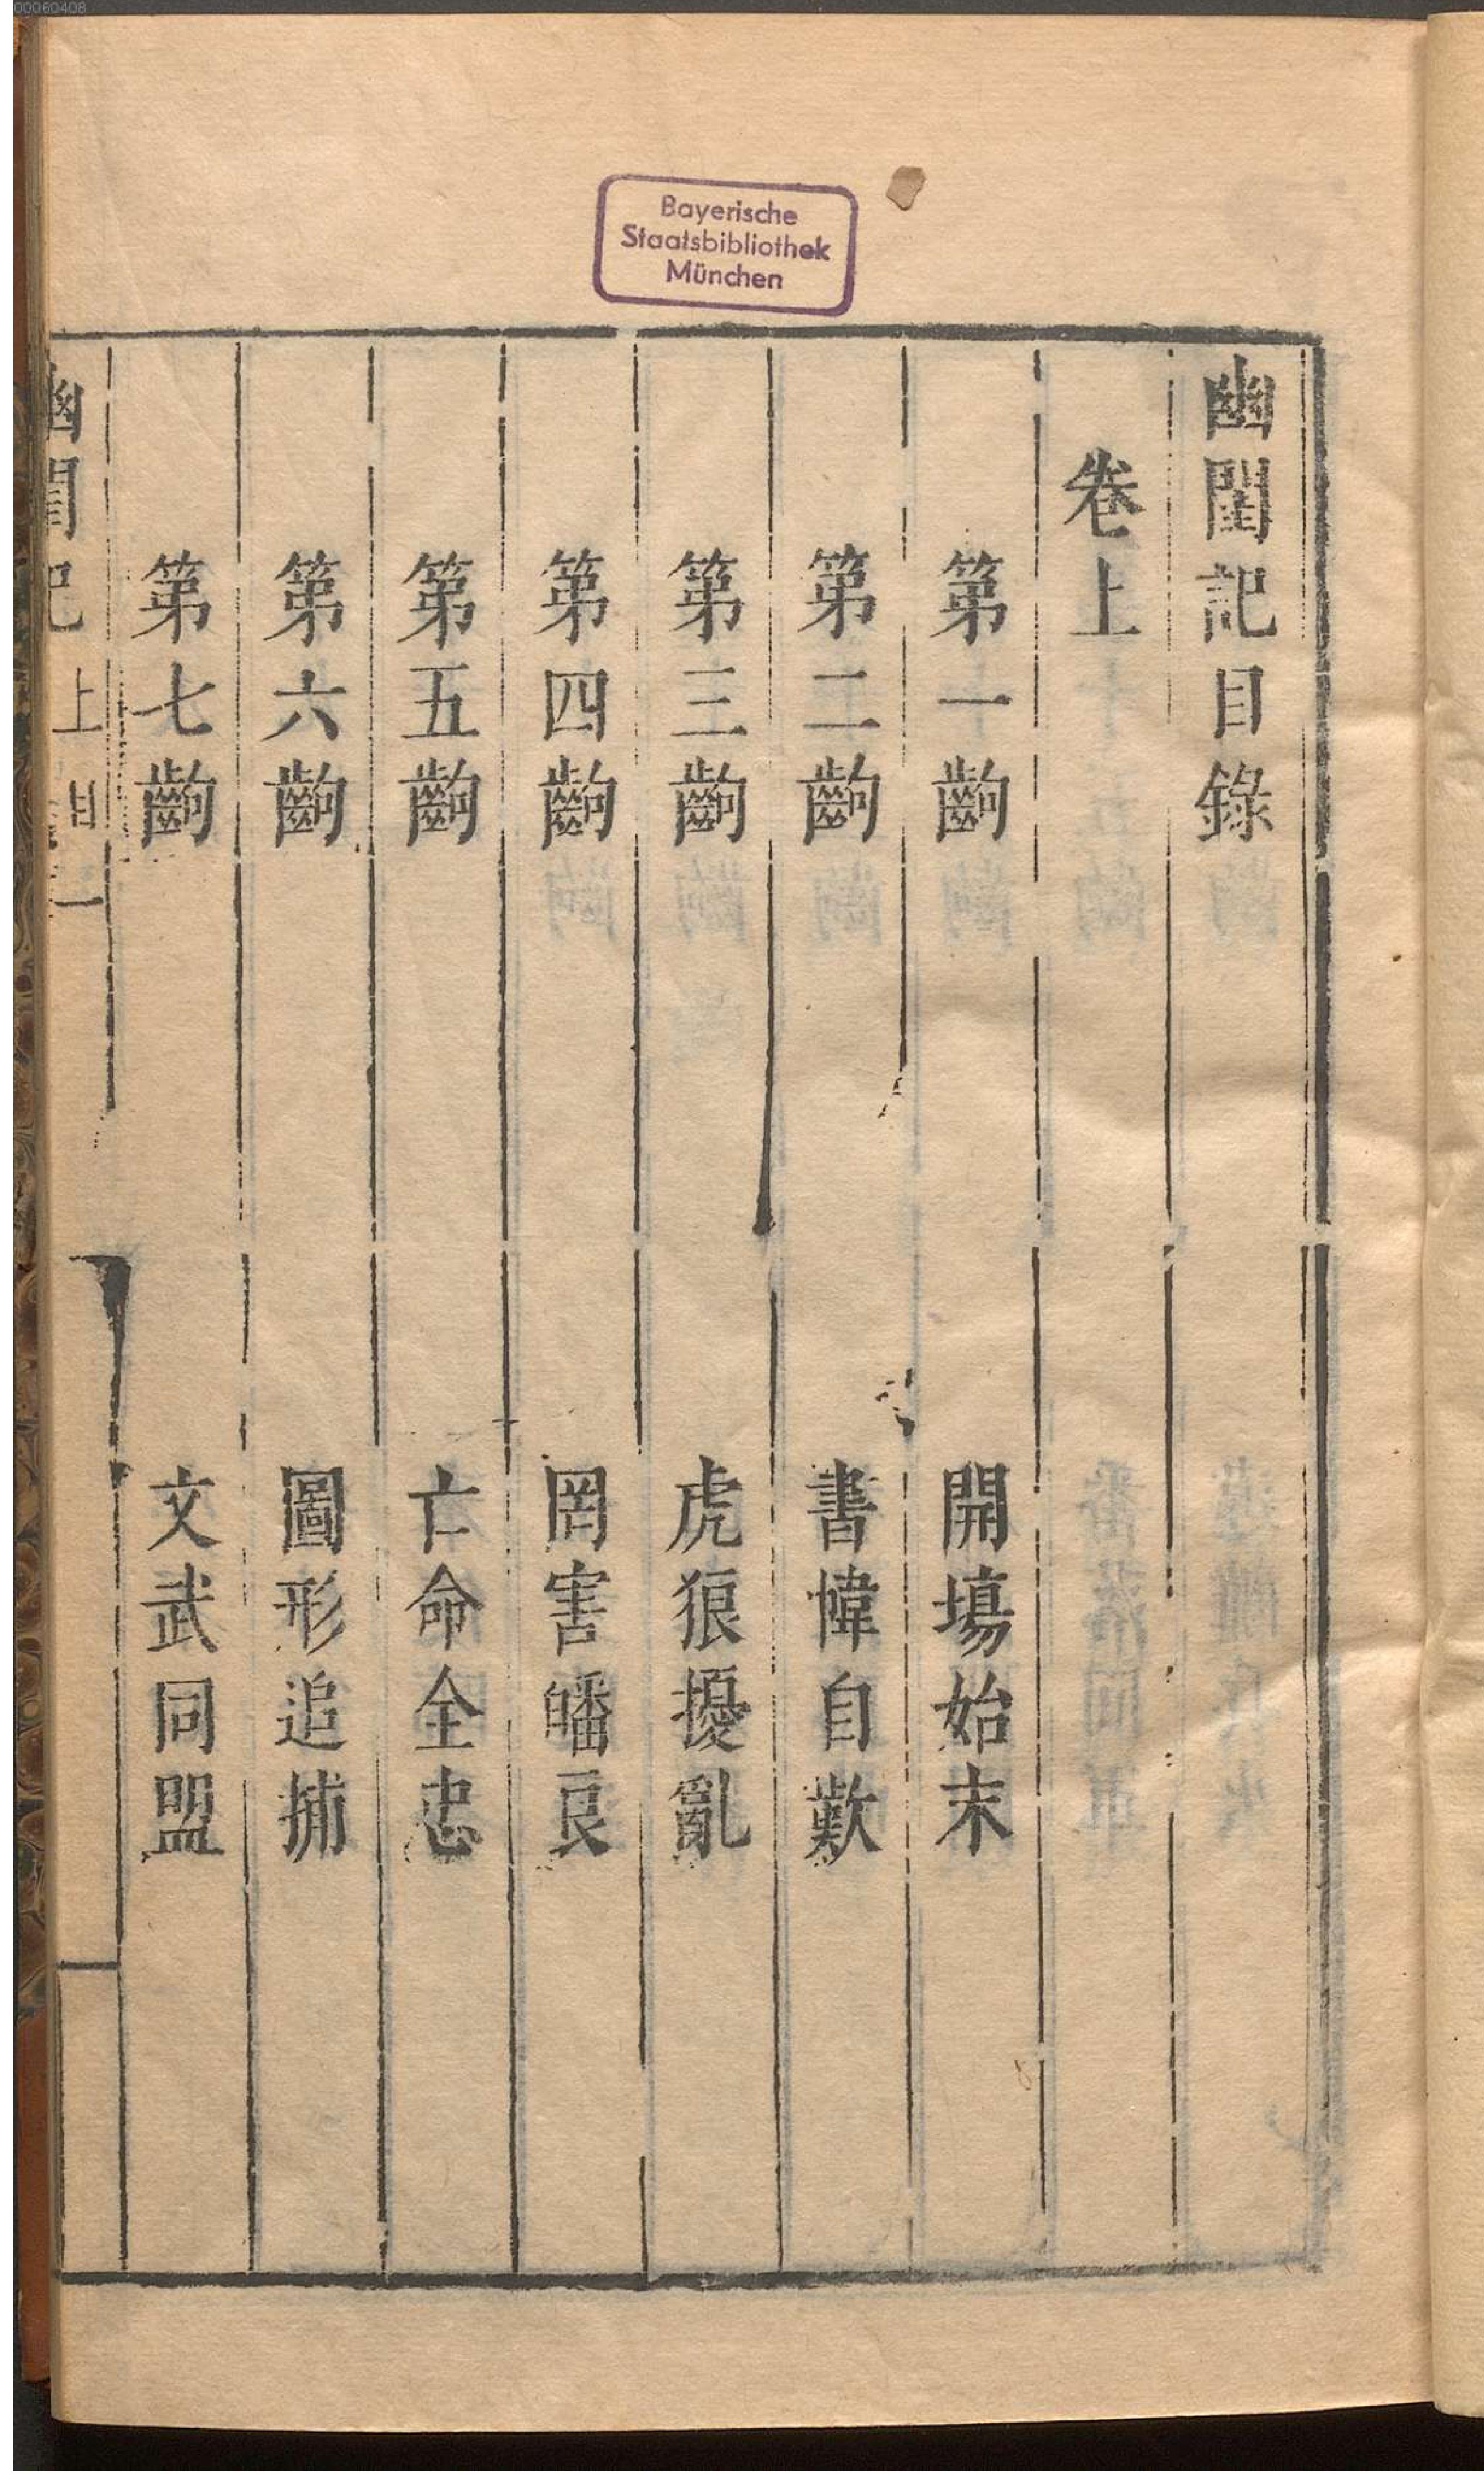 00060408
Bayerische
Staatsbibliothek
München
幽閨記目錄
卷上
第一齣 開場始末
第二齣 書幃自歎
第三齣 虎狼擾亂
第四齣 罔害皤良
第五齣 亡命全忠
第六齣 圖形追捕
第七齣 文武同盟
幽閨記 上目 一